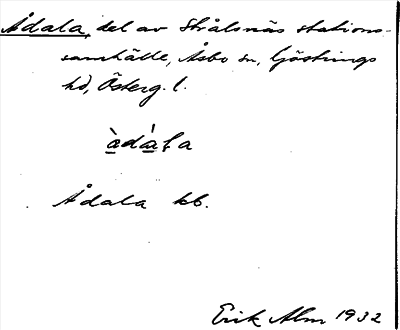 Ådala, del av Strålsnäs stations-
samhälle, Åsbo sn, Göstrings
hd, Österg. l.
àdàla
Ådala kb.
Erik Alm 1932